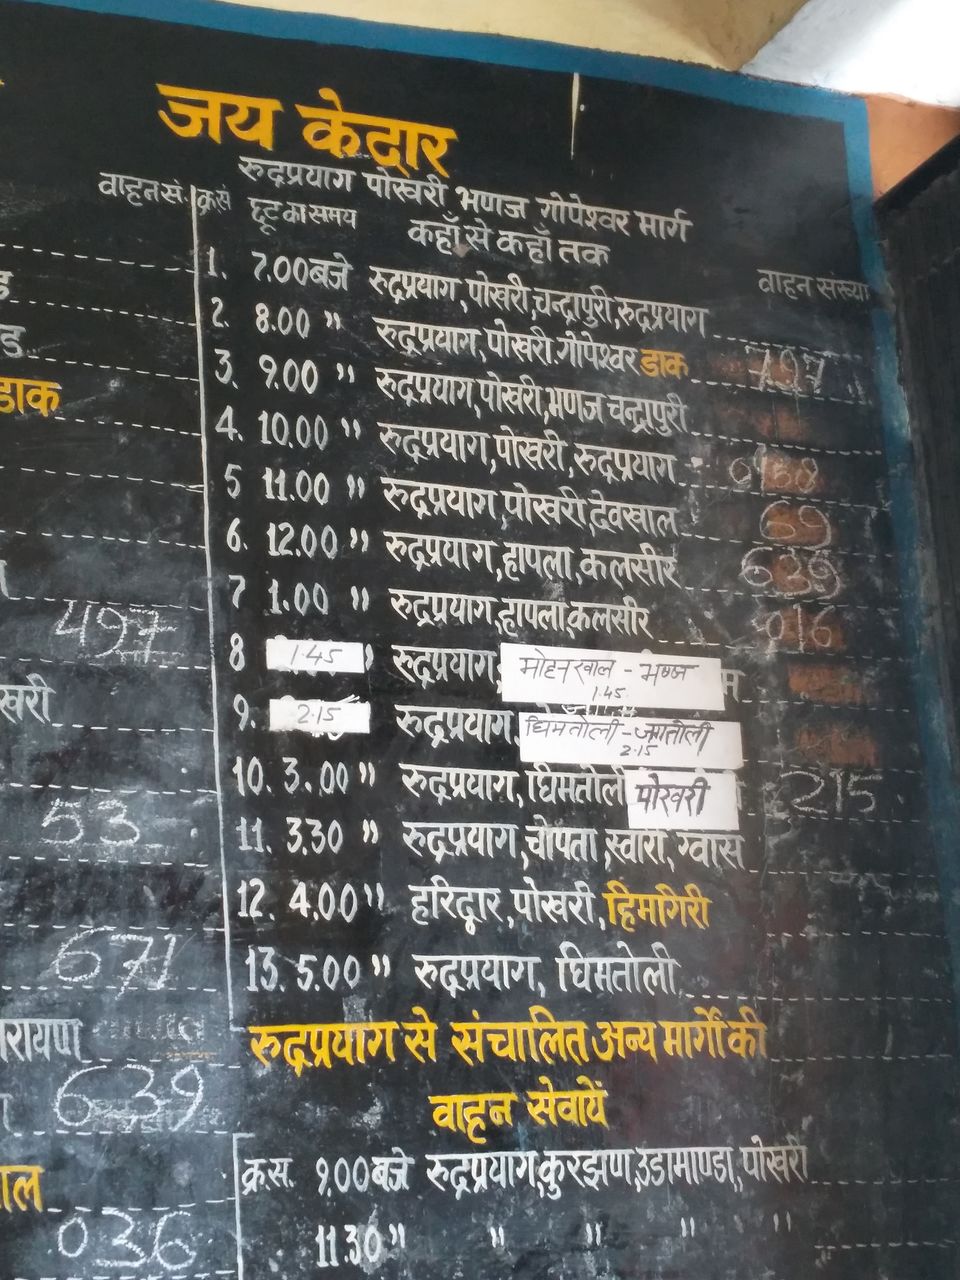 जय केदार
रुद्रप्रयाग पोखरी भणज गोपेश्वर मार्ग
वाहन सं. क्र सं छूट का समय कहाँ से कहाँ तक वाहन संख्या
1. 7.00 बजे रुद्रप्रयाग, पोखरी, चन्द्रापुरी, रुद्रप्रयाग
2. 8.00 " रुद्रप्रयाग, पोखरी. गोपेश्वर डाक 797
3. 9.00 " रुद्रप्रयाग, पोखरी, भणज चन्द्रापुरी
डाक
4. 10.00 " रुद्रप्रयाग, पोखरी, रुद्रप्रयाग
5 11.00 " रुद्रप्रयाग, पोखरी, देवखाल 59
6. 12.00 " रुद्रप्रयाग, हापला, कलसीर 639
7 1.00 " रुद्रप्रयाग, हापला, कलसीर 016
497
8 1.45 " रुद्रप्रयाग, मोहनखाल - भणज
1.45
खरी
9. 2.15 रुद्रप्रयाग, घिमतोली - जगतोली
2.15
10. 3.00 " रुद्रप्रयाग, घिमतोली पोखरी 215
53
11. 3.30 " रुद्रप्रयाग, चोपता, स्वारी, ग्वास
12. 4.00 " हरिद्वार, पोखरी, हिमगिरी
671
13. 5.00 " रुद्रप्रयाग, घिमतोली
रायण
रुद्रप्रयाग से संचालित अन्य मार्गों की
वाहन सेवायें
639
क्र.स. 9.00 बजे रुद्रप्रयाग, कुरझण, उडामाण्डा, पोखरी
ाल
036
11.30 " " " " "